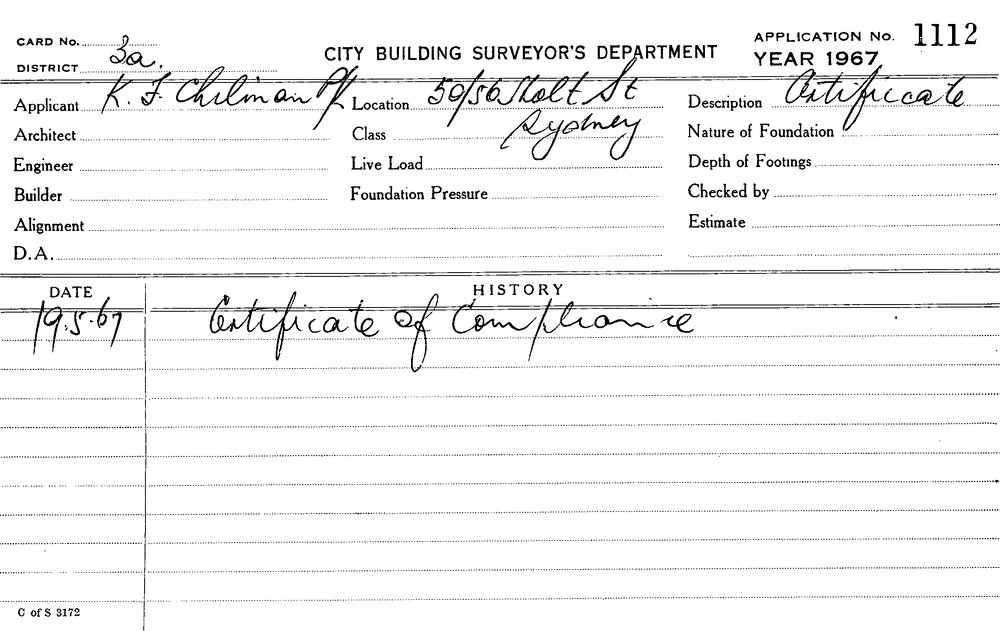 CARD No.
DISTRICT 3a.
CITY BUILDING SURVEYOR'S DEPARTMENT
APPLICATION No. 1112
YEAR 1967
Applicant K. F. Chilman P/L Location 50/56 Holt St Description Certificate
Architect Class Sydney Nature of Foundation
Engineer Live Load Depth of Footings
Builder Foundation Pressure Checked by
Alignment Estimate
D.A.
DATE HISTORY
19.5.67 Certificate of Compliance
C of S 3172